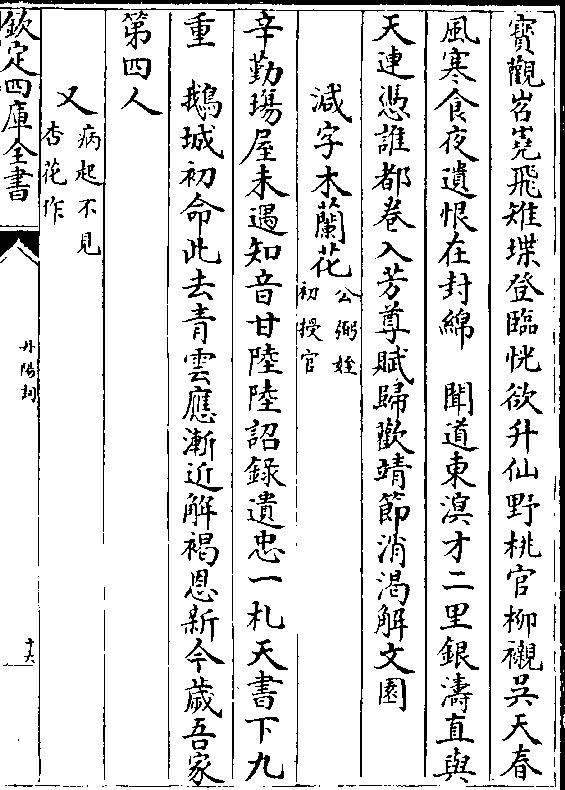 寳觀岧嶤飛雉堞登臨恍欲升仙野桃官柳襯吳天春
風寒食夜遺恨在封綿　聞道東溟才二里銀濤直與
天連憑誰都卷入芳尊賦歸歌靖節消渴解文園
減字木蘭花公弼姪初授官
辛勤場屋未遇知音甘陸陸詔録遺忠一札天書下九
重　鵝城初命此去青雲應漸近解褐恩新今歲吾家
第四人
又病起不見杏花作
欽定四庫全書
丹陽詞
十六